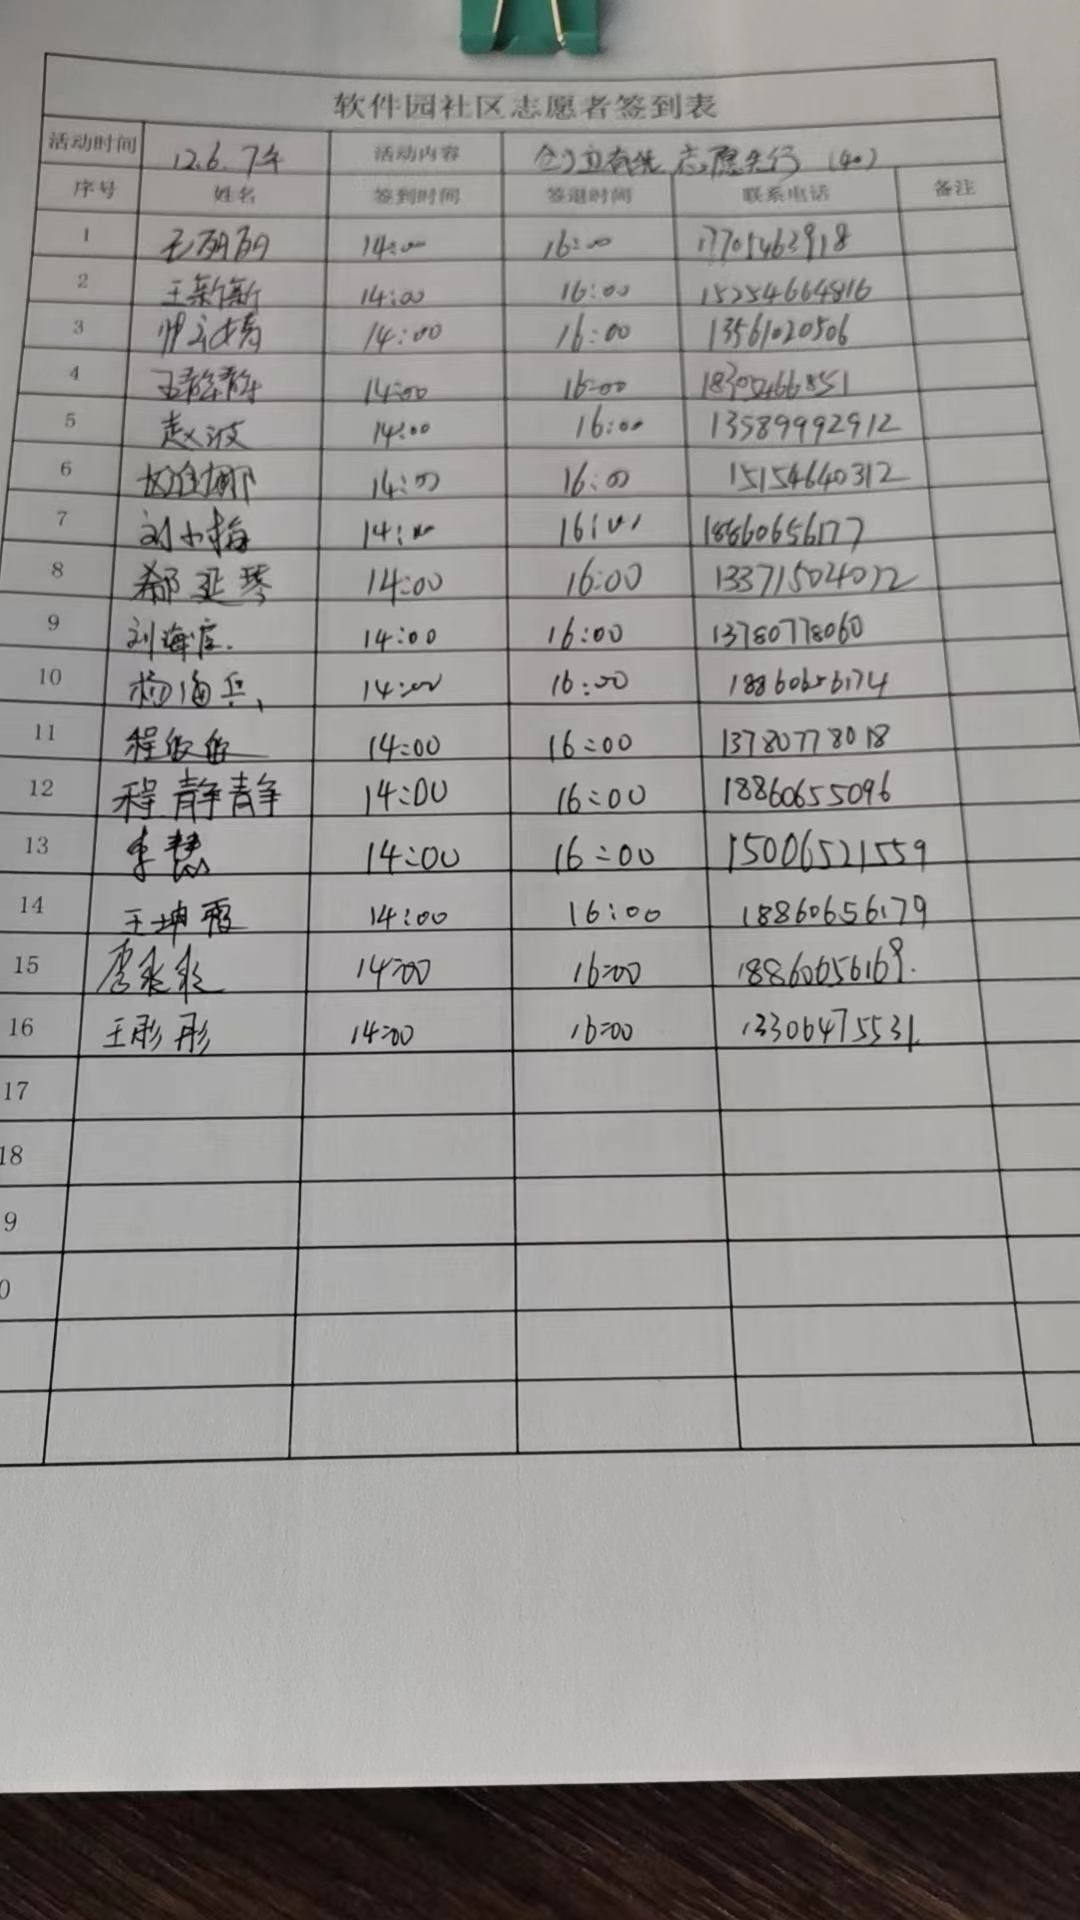 软件园社区志愿者签到表
活动时间 12.6.下午 活动内容 创卫有我 志愿先行 (40)
序号 姓名 签到时间 签退时间 联系电话 备注
1 14:00 16:00 17705462918
2 王新新 14:00 16:00 15254664816
3 14:00 16:00 13561020506
4 14:00 16:00 18305466851
5 赵波 14:00 16:00 13589992912
6 14:00 16:00 15154640312
7 刘小梅 14:00 16:00 18860656177
8 郗亚琴 14:00 16:00 133715024022
9 14:00 16:00 13780778060
10 杨海兵 14:00 16:00 18860656174
11 14:00 16:00 13780778018
12 程静静 14:00 16:00 18860655096
13 李慧 14:00 16:00 15006521559
14 王坤霞 14:00 16:00 18860656179
15 14:00 16:00 18860656169.
16 王彤彤 14:00 16:00 13306475531
17
18
9
0